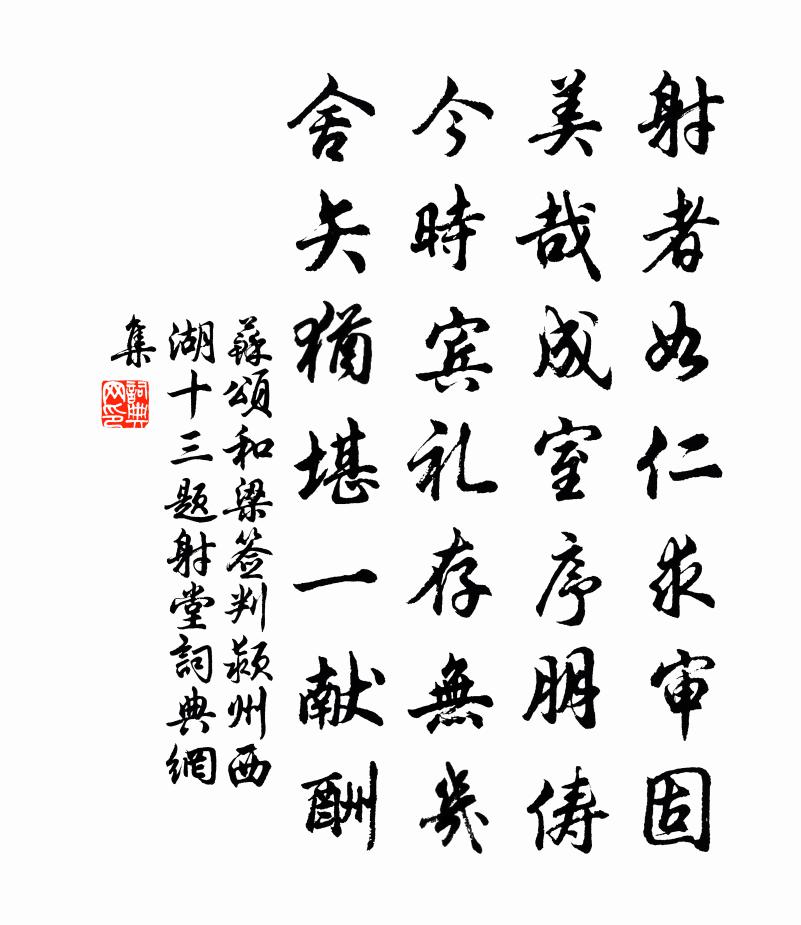 射者如仁求审固
美哉成室序朋俦
今時宾礼存無幾
舍矢猶堪一献酬
蘇頌和梁签判颍州西
湖十三题射堂詞典網
集
詞典网印